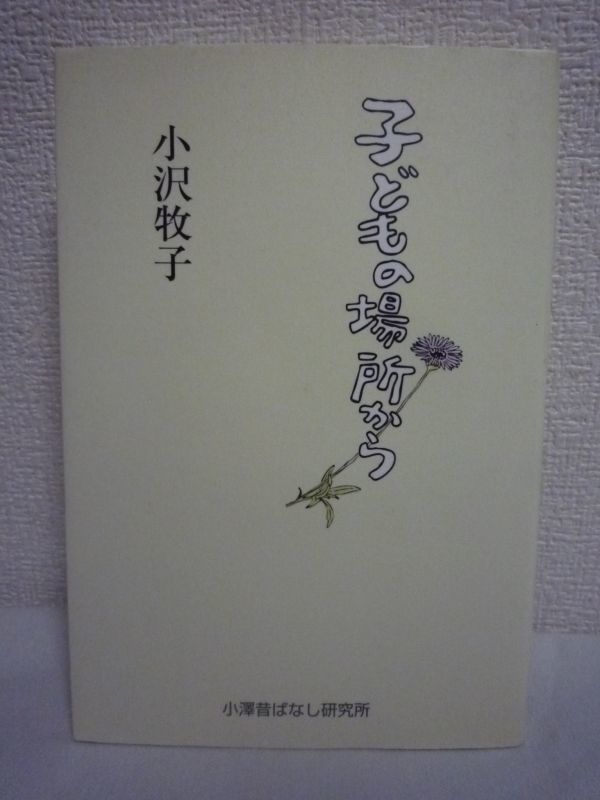 子どもの場所から
小沢牧子
小澤昔ばなし研究所